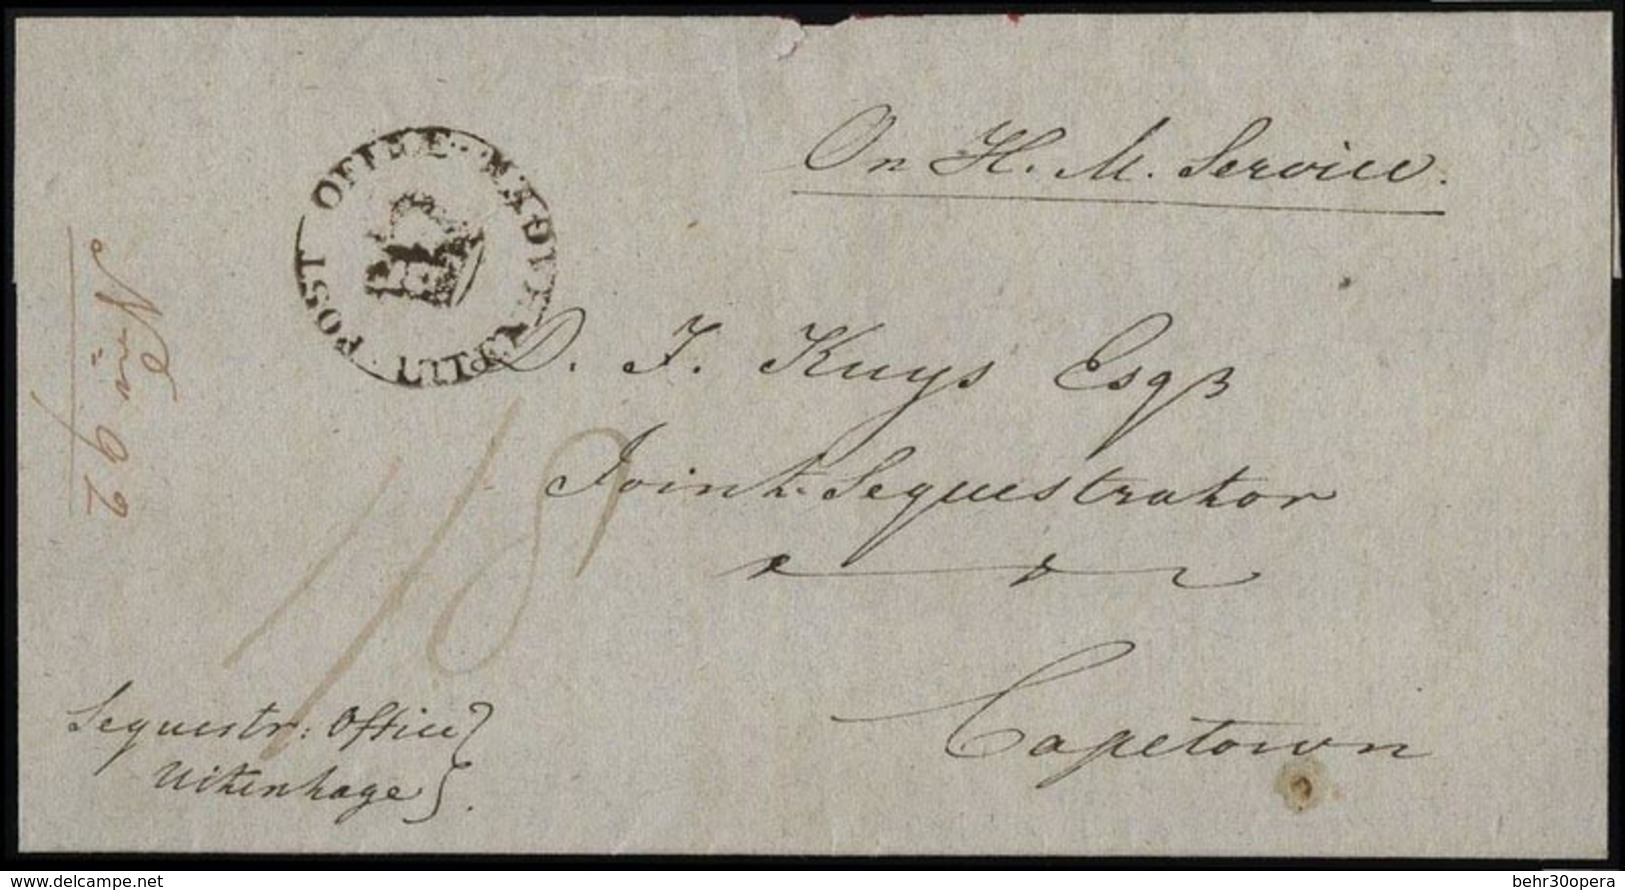 On H. M. Service.
POST OFFICE
D. J. Kuys Esqr
Joint Sequestrator
Capetown
1/8
Sequestr: Office
Uitenhage
No 92
www.delcampe.net
behr30opera